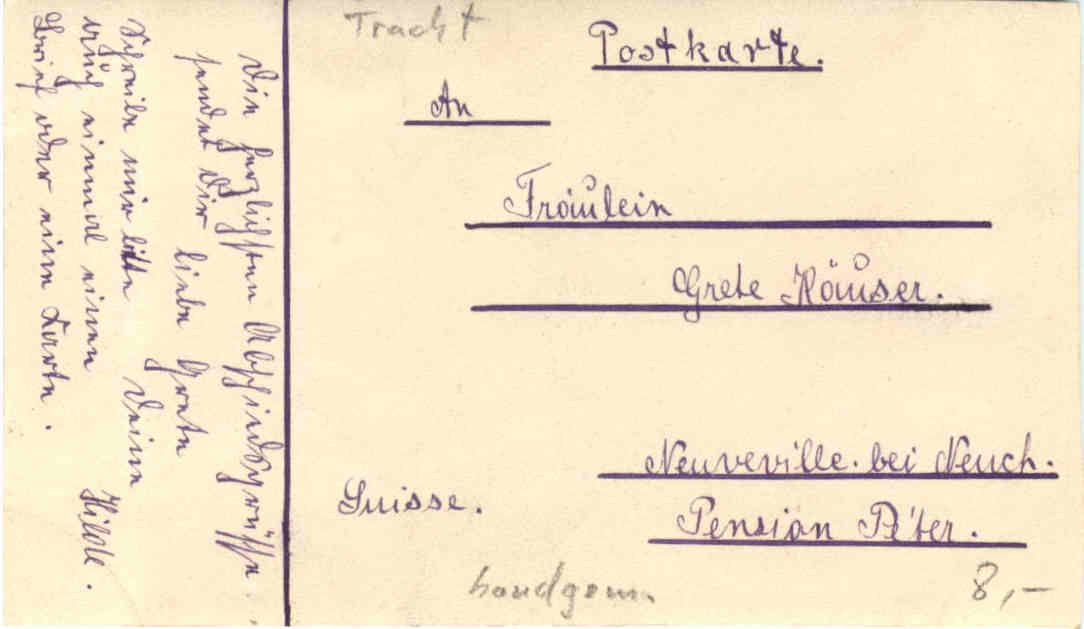 Tracht
Postkarte.
An
Fräulein
Grete Häuser.
Neuveville. bei Neuch.
Suisse.
Pension Péter.
handgem.
8,–
Die herzlichsten Abschiedsgrüsse.
sendet Dir liebe Grete
Schreibe mir bitte Deine
auch einmal einen Hilde.
Brief oder eine Karte.